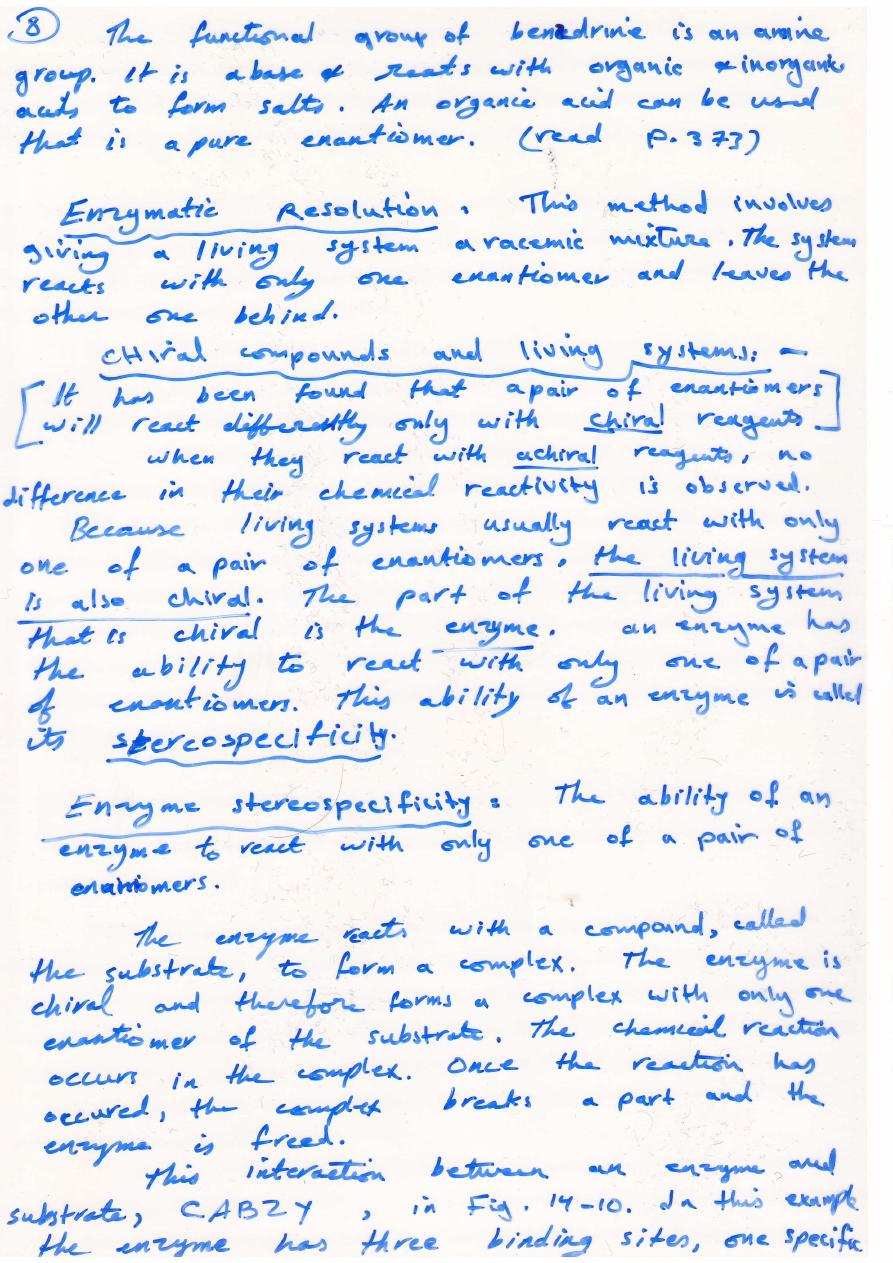 8
The functional group of benzedrine is an amine
group. It is a base & reacts with organic & inorganic
acids to form salts. An organic acid can be used
that is a pure enantiomer. (read P. 373)
Enzymatic Resolution. This method involves
giving a living system a racemic mixture. The system
reacts with only one enantiomer and leaves the
other one behind.
CHiral compounds and living systems: -
[It has been found that a pair of enantiomers
will react differently only with chiral reagents.]
when they react with achiral reagents, no
difference in their chemical reactivity is observed.
Because living systems usually react with only
one of a pair of enantiomers, the living system
is also chiral. The part of the living system
that is chiral is the enzyme. an enzyme has
the ability to react with only one of a pair
of enantiomers. This ability of an enzyme is called
its stereospecificity.
Enzyme stereospecificity: The ability of an
enzyme to react with only one of a pair of
enantiomers.
The enzyme reacts with a compound, called
the substrate, to form a complex. The enzyme is
chiral and therefore forms a complex with only one
enantiomer of the substrate. The chemical reaction
occurs in the complex. Once the reaction has
occured, the complex breaks a part and the
enzyme is freed.
This interaction between an enzyme and
substrate, CABZY , in Fig. 14-10. In this example
the enzyme has three binding sites, one specific